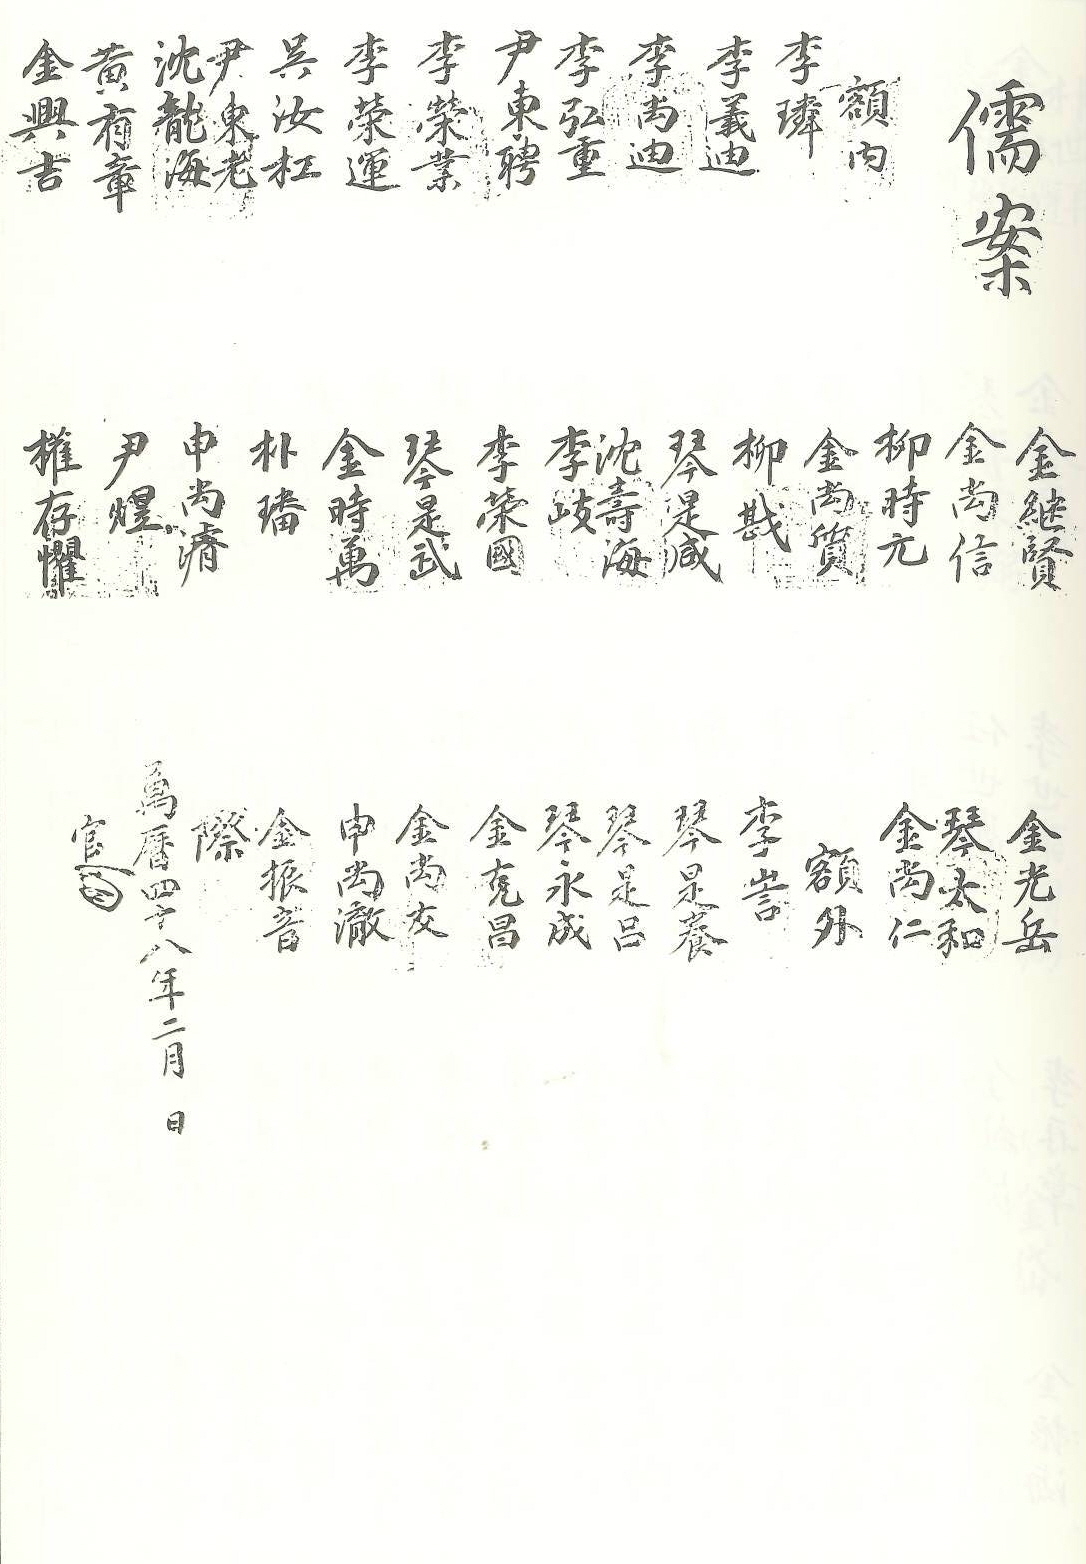 儒案
額内
李璘
李義迪
李尚迪
李弘重
尹東聘
李榮業
李榮運
吴汝杠
尹東老
沈龍海
黄有章
金興吉
金継賢
金尚信
柳時亢
金尚質
柳戡
琴是咸
沈壽海
李岐
李榮國
琴是武
金時萬
朴璠
申尚濬
尹煜
權存懼
金光岳
琴太和
金尚仁
額外
李訔
琴是養
琴是吕
琴永成
金克昌
金尚友
申尚澈
金振音
際
萬曆四十八年二月 日
官